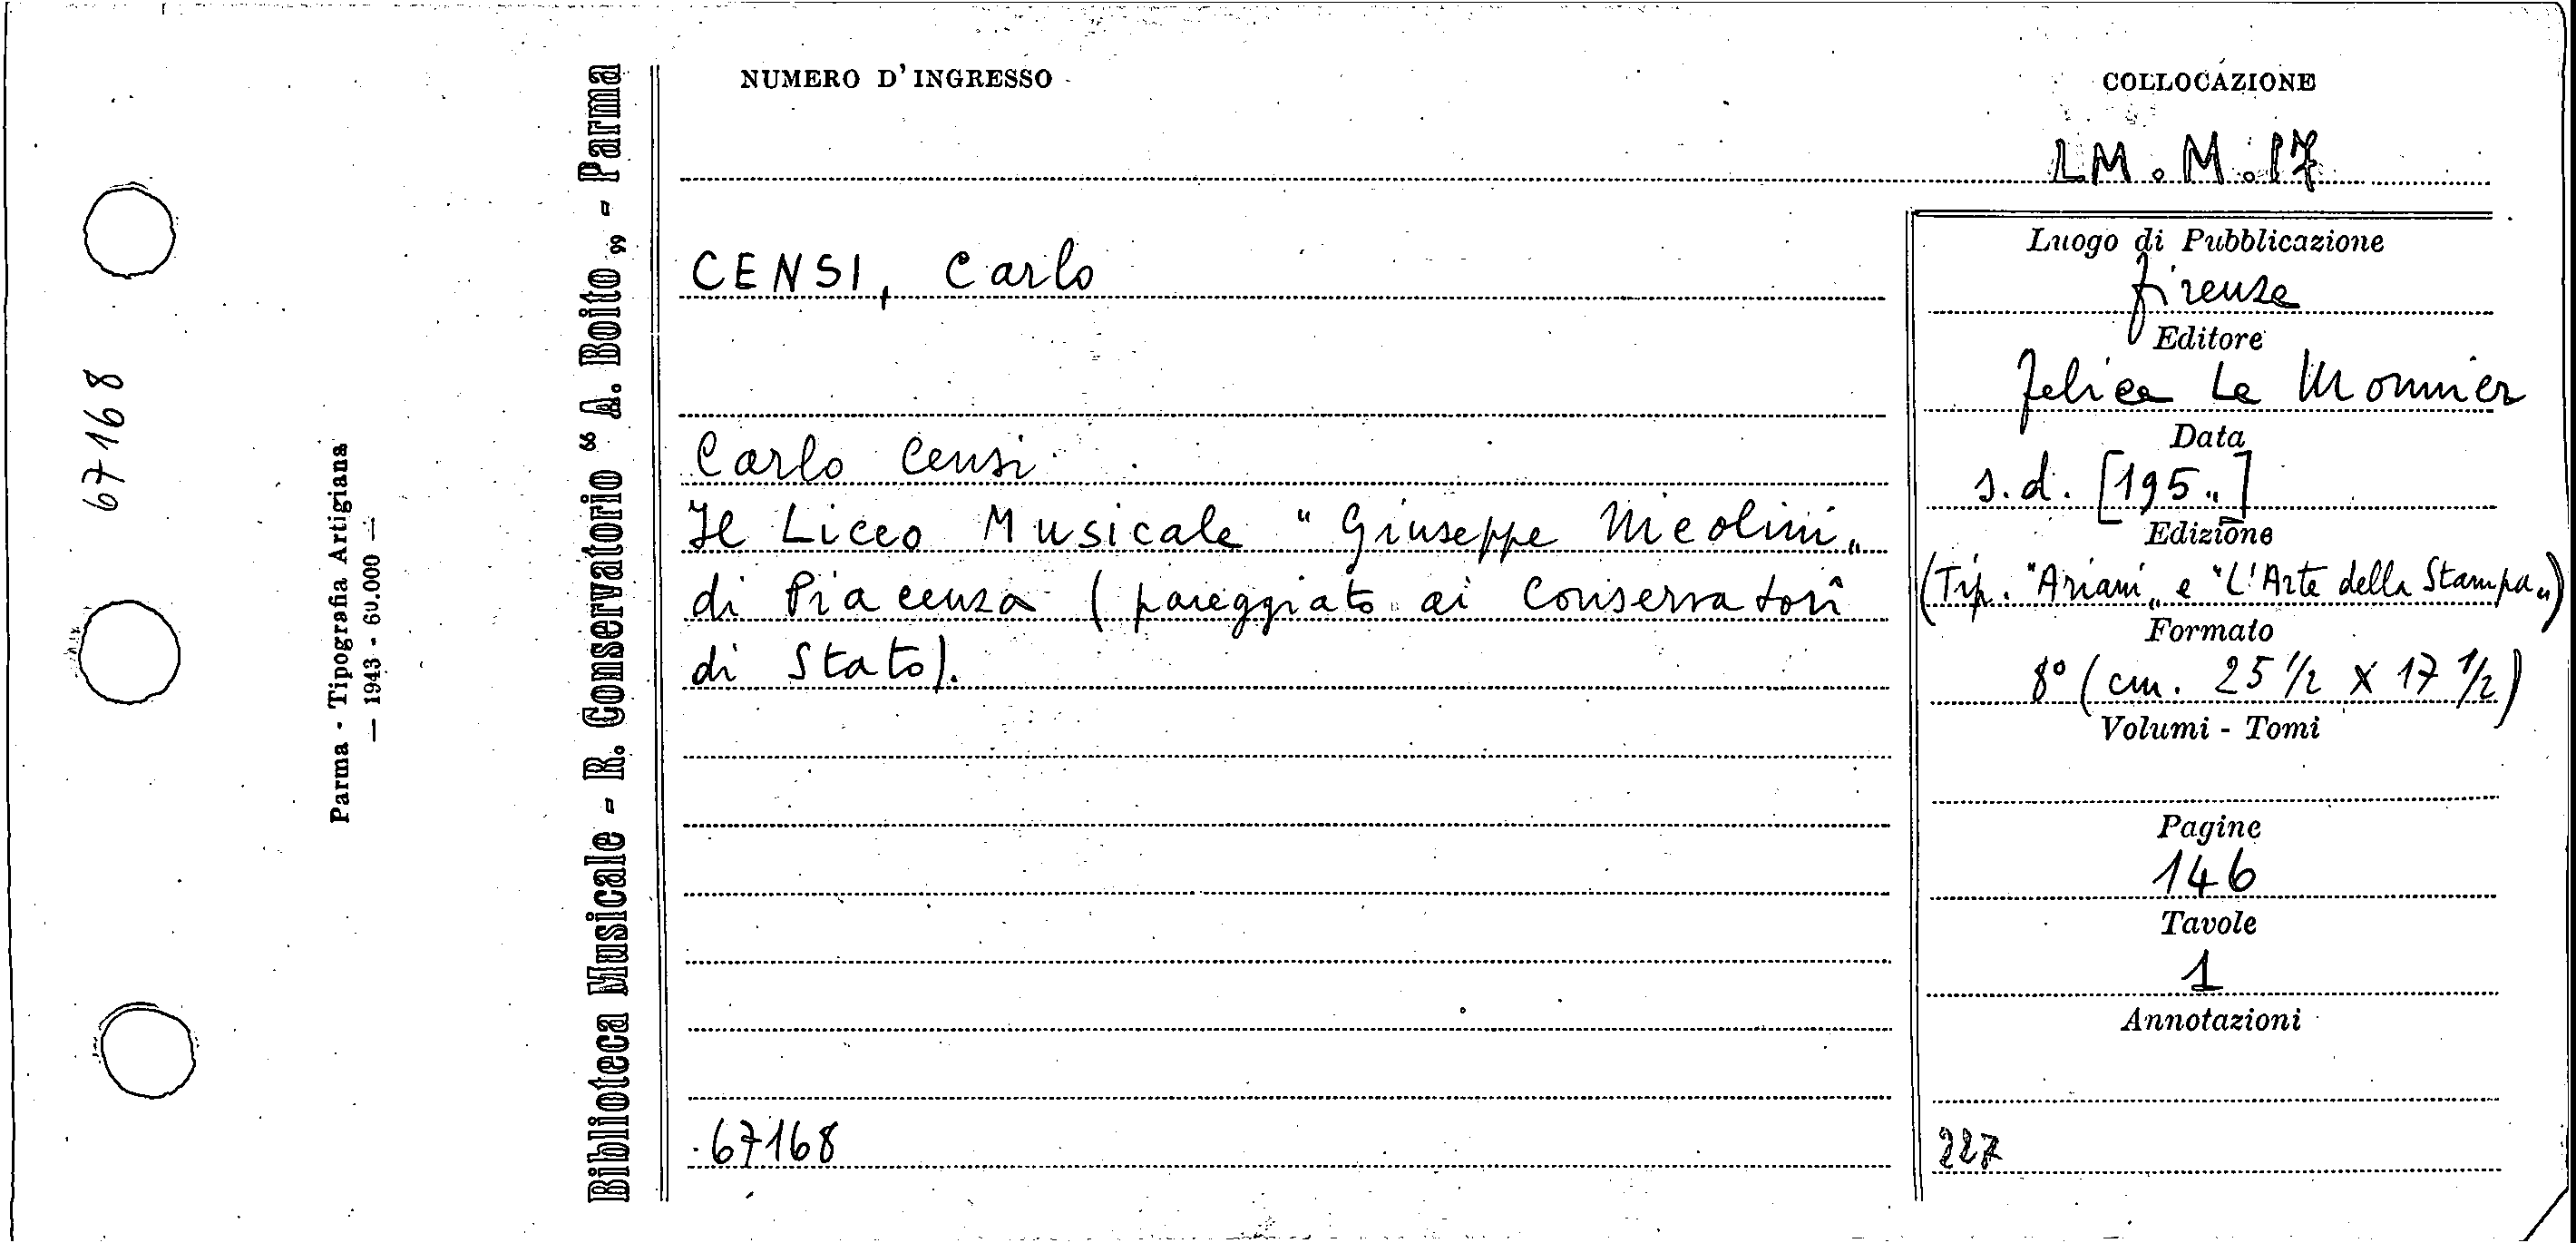 67168
Parma - Tipografia Artigiana
— 1943 - 60.000 —
Biblioteca Musicale - R. Conservatorio “ A. Boito „ - Parma
NUMERO D'INGRESSO
COLLOCAZIONE
LM. M. 17
CENSI, Carlo
Carlo Censi
Il Liceo Musicale " Giuseppe Nicolini „
di Piacenza ( pareggiato ai Conservatorî
di Stato).
67168
Luogo di Pubblicazione
Firenze
Editore
Felice Le Monnier
Data
s.d. [195..]
Edizione
(Tip. "Ariani„ e "L'Arte della Stampa„)
Formato
8° (cm. 25 1/2 x 17 1/2)
Volumi - Tomi
Pagine
146
Tavole
1
Annotazioni
227